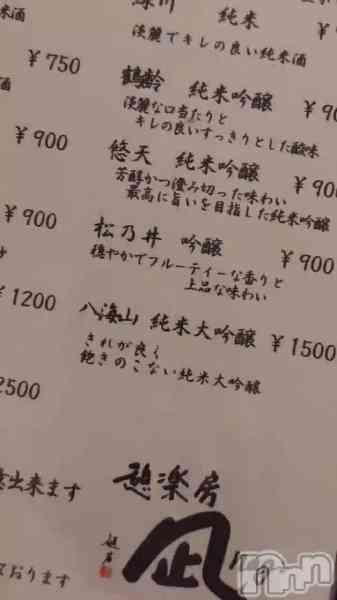 純米
淡麗でキレの良い純米酒
米酒
¥750
鶴齢 純米吟醸
淡麗な口当たりと
キレの良いすっきりとした酸味
¥900
悠天 純米吟醸
¥900
芳醇かつ澄み切った味わい
最高に旨いを目指した純米吟醸
¥900
松乃井 吟醸
¥900
穏やかでフルーティーな香りと
上品な味わい
¥1200
八海山 純米大吟醸
¥1500
きれが良く
飽きのこない純米大吟醸
2500
出来ます
憩楽房
凪
ております